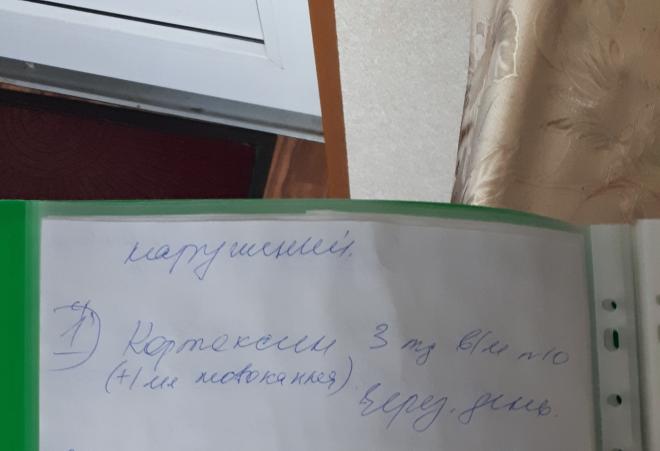 нарушений.
1) Кортексин 3 мг в/м N10
(+1 мл новокаина).
Через. день.